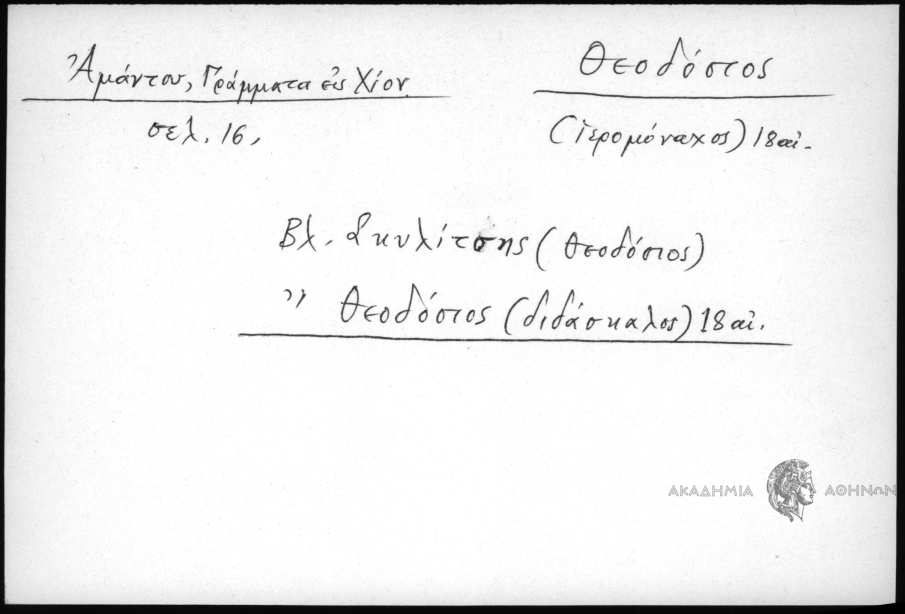 Ἀμάντου, Γράμματα εἰς Χίον
σελ. 16,
Θεοδόσιος
(ἱερομόναχος) 18 αἰ.
Βλ. Σκυλίτσης (Θεοδόσιος)
〃 Θεοδόσιος (διδάσκαλος) 18 αἰ.
ΑΚΑΔΗΜΙΑ ΑΘΗΝΩΝ